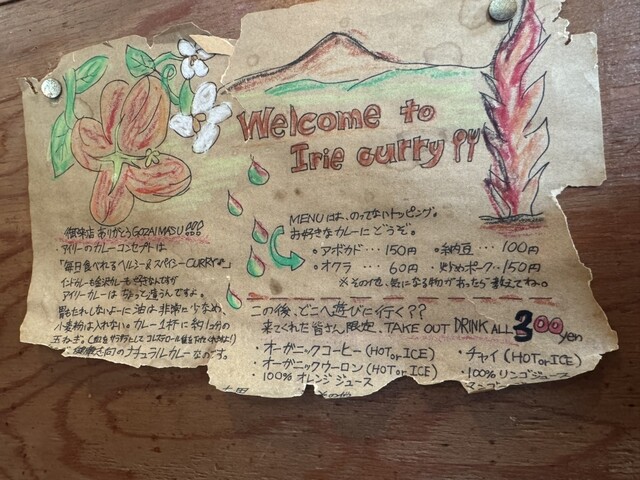 Welcome to
Irie curry
御来店ありがとうGOZAIMASU!!!
アイリーのカレーコンセプトは
「毎日食べれるヘルシー&スパイシーCURRY」
インドカレーも金沢カレーも大好きなんですが
アイリーカレーはちょっと違うんですよ。
胃もたれしないように油は非常に少なめ、
小麦粉は入れない。カレー1杯に約1ヶ分の
玉ねぎ。
健康志向のナチュラルカレーなのです。
MENUは、のってないトッピング。
お好きなカレーにどうぞ。
。アボカド・・・150円 。納豆・・・100円
。オクラ・・・60円 。炒めポーク・・150円
※その他、気になる物があったら教えてね。
この後、どこへ遊びに行く??
来てくれた皆さん限定、TAKE OUT DRINK ALL 300yen
・オーガニックコーヒー(HOT or ICE) ・チャイ(HOT or ICE)
・オーガニックウーロン(HOT or ICE) ・100%リンゴジュース
・100%オレンジジュース